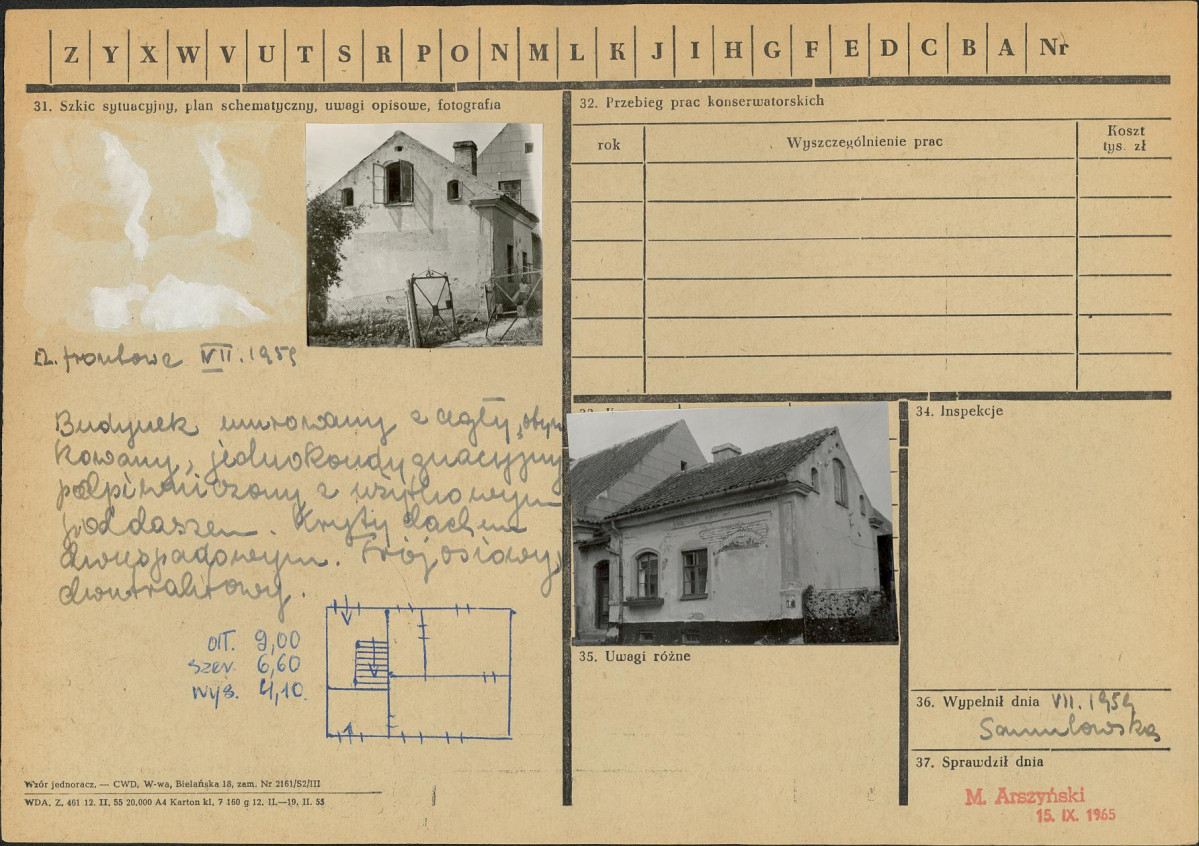 Z Y X W V U T S R P O N M L K J I H G F E D C B A Nr
31. Szkic sytuacyjny, plan schematyczny, uwagi opisowe, fotografia
El. frontowa VII. 1959
Budynek murowany z cegły, otyn
kowany, jednokondygnacyjny
podpiwniczony z użytkowym
poddaszem. Kryty dachem
dwuspadowym. Trójosiowy,
dwutraktowy.
dł. 9,00
szer. 6,60
wys. 4,10.
Wzór jednoracz. — CWD, W-wa, Bielańska 18, zam. Nr 2161/52/III
WDA. Z. 461 12. II. 55 20,000 A4 Karton kl, 7 160 g 12. II.—19. II. 55
32. Przebieg prac konserwatorskich
rok
Wyszczególnienie prac
Koszt
tys. zł
34. Inspekcje
35. Uwagi różne
36. Wypełnił dnia VII. 1959
Samulowska
37. Sprawdził dnia
M. Arszyński
15. IX. 1965